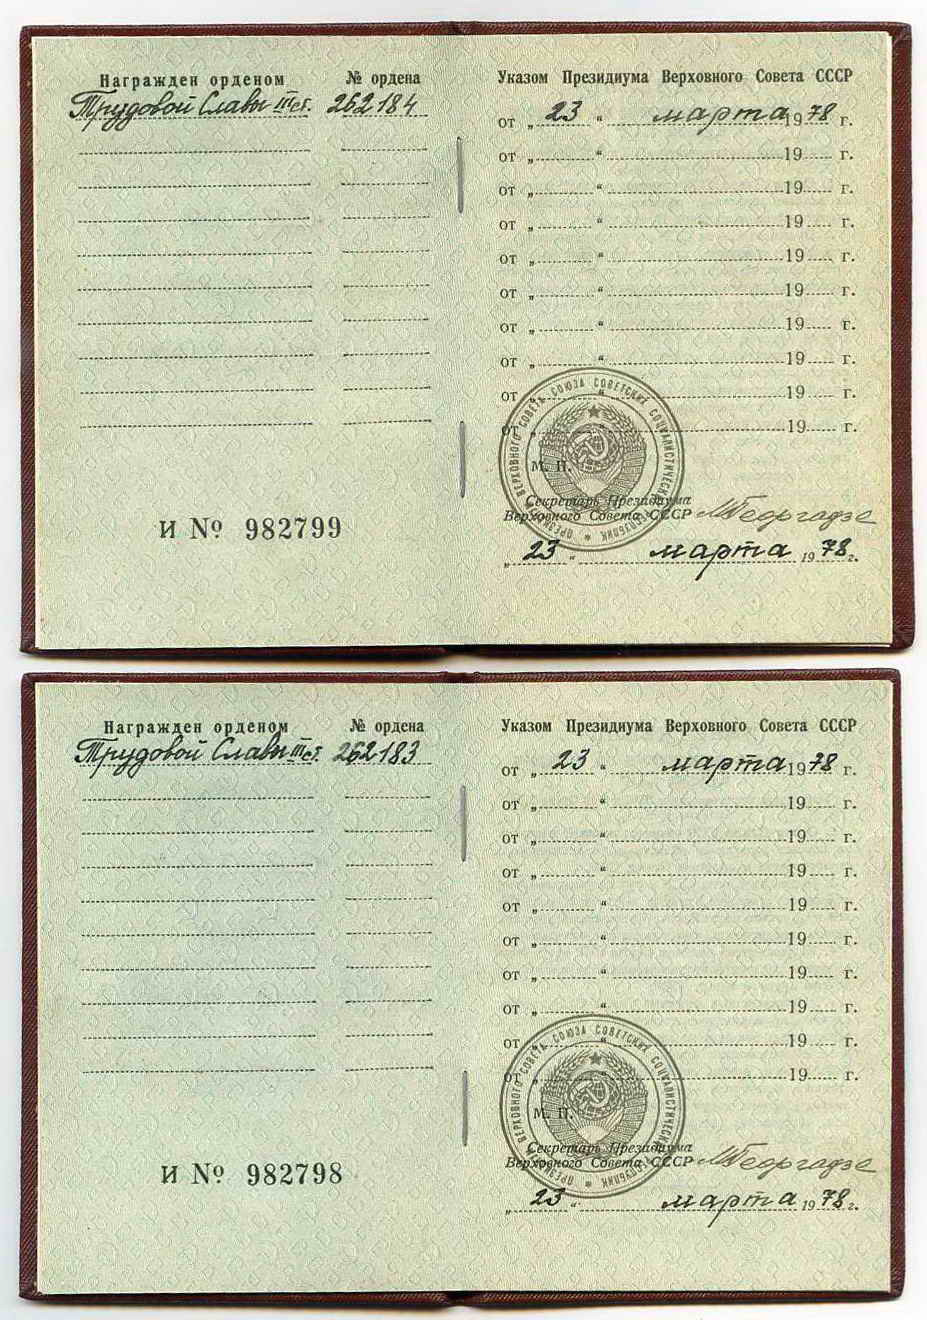 Награжден орденом № ордена
Трудовой Славы III ст. 262184
Указом Президиума Верховного Совета СССР
от „ 23 “ марта 1978 г.
от „ “ 19 г.
от „ “ 19 г.
от „ “ 19 г.
от „ “ 19 г.
от „ “ 19 г.
от „ “ 19 г.
от „ “ 19 г.
от „ “ 19 г.
от „ “ 19 г.
ПРЕЗИДИУМ ВЕРХОВНОГО СОВЕТА СОЮЗА СОВЕТСКИХ СОЦИАЛИСТИЧЕСКИХ РЕСПУБЛИК
М. П.
Секретарь Президиума
Верховного Совета СССР МГеоргадзе
„ 23 “ марта 1978 г.
И № 982799
Награжден орденом № ордена
Трудовой Славы III ст. 262183
Указом Президиума Верховного Совета СССР
от „ 23 “ марта 1978 г.
от „ “ 19 г.
от „ “ 19 г.
от „ “ 19 г.
от „ “ 19 г.
от „ “ 19 г.
от „ “ 19 г.
от „ “ 19 г.
от „ “ 19 г.
от „ “ 19 г.
ПРЕЗИДИУМ ВЕРХОВНОГО СОВЕТА СОЮЗА СОВЕТСКИХ СОЦИАЛИСТИЧЕСКИХ РЕСПУБЛИК
М. П.
Секретарь Президиума
Верховного Совета СССР МГеоргадзе
„ 23 “ марта 1978 г.
И № 982798